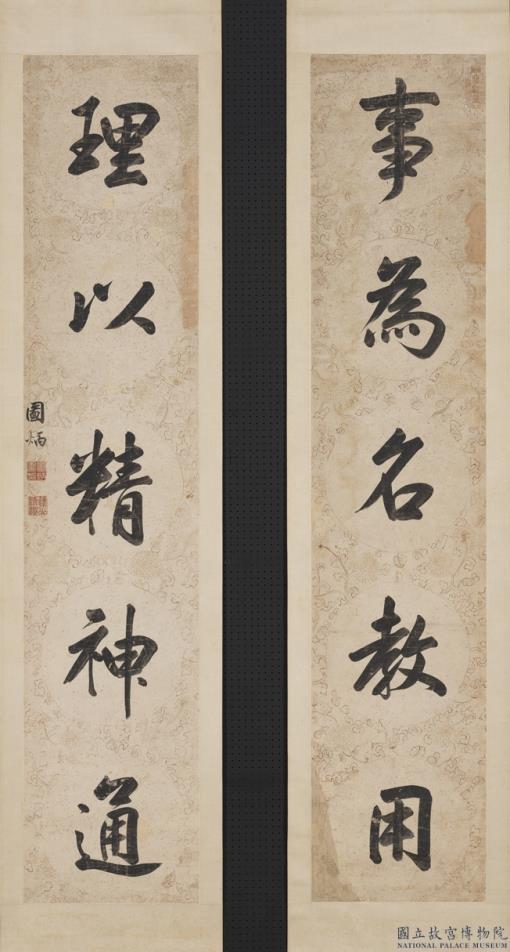 事為名教用
理以精神通
圖炳
國立故宮博物院
NATIONAL PALACE MUSEUM